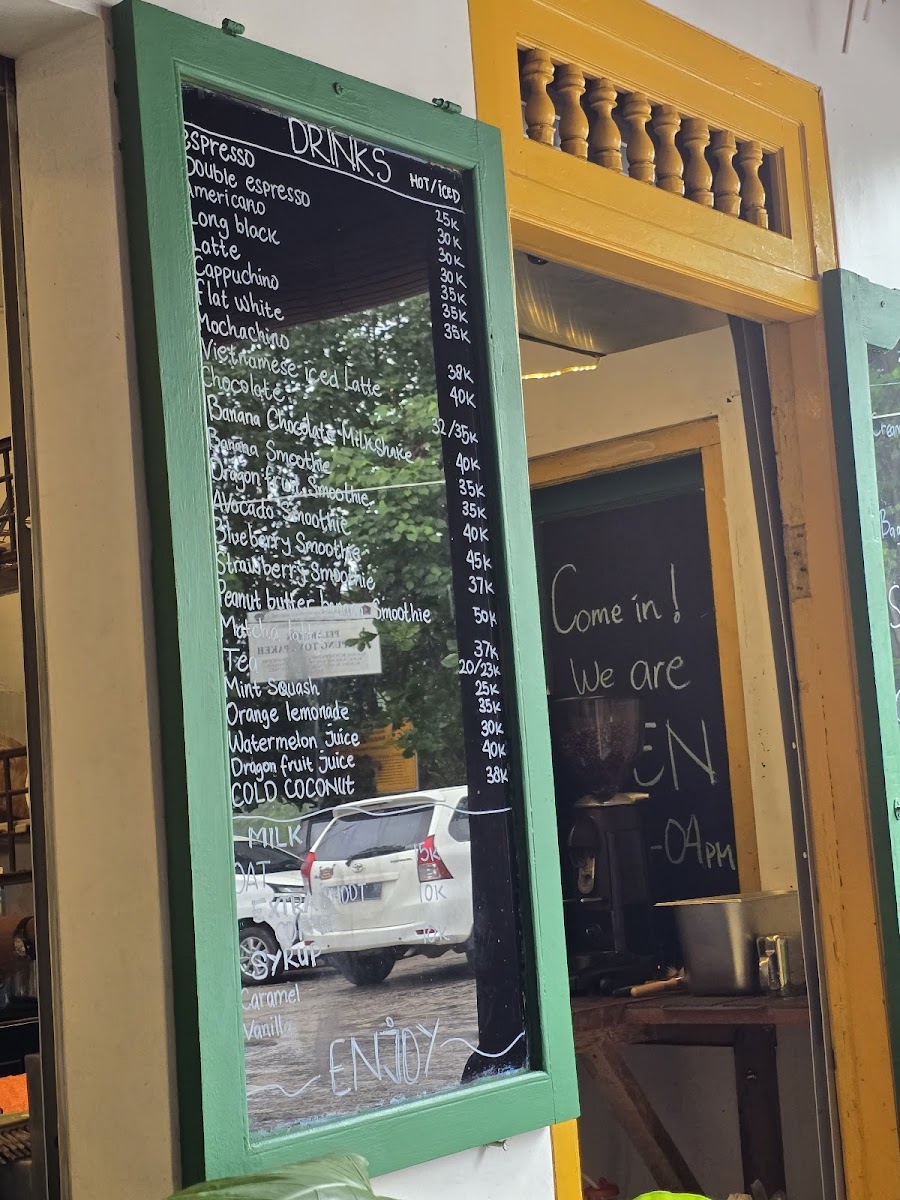 DRINKS HOT/ICED
Espresso 25K
Double espresso 30K
Americano 30K
Long black 30K
Latte 35K
Cappuchino 35K
Flat white 35K
Mochachino 38K
Vietnamese iced Latte 40K
Chocolate 32/35K
Banana Chocolate Milkshake 40K
Banana Smoothie 35K
Dragon fruit Smoothie 35K
Avocado Smoothie 40K
Blueberry Smoothie 45K
Strawberry Smoothie 37K
Peanut butter banana Smoothie 50K
Matcha latte 37K
Tea 20/23K
Mint Squash 25K
Orange lemonade 35K
Watermelon Juice 30K
Dragon fruit Juice 40K
COLD COCONUT 38K
MILK
OAT 15K
EXTRA SHOOT 10K
SYRUP 10K
Caramel
Vanilla
ENJOY
Come in!
We are
EN
-04PM